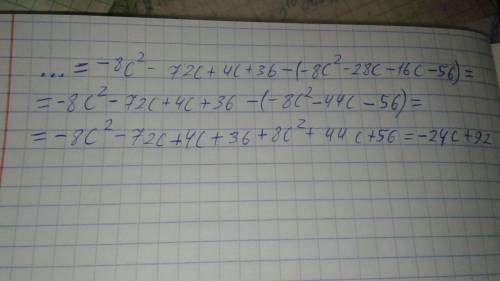 ... = -8c² - 72c + 4c + 36 - (-8c² - 28c - 16c - 56) =
= -8c² - 72c + 4c + 36 - (-8c² - 44c - 56) =
= -8c² - 72c + 4c + 36 + 8c² + 44c + 56 = -24c + 92